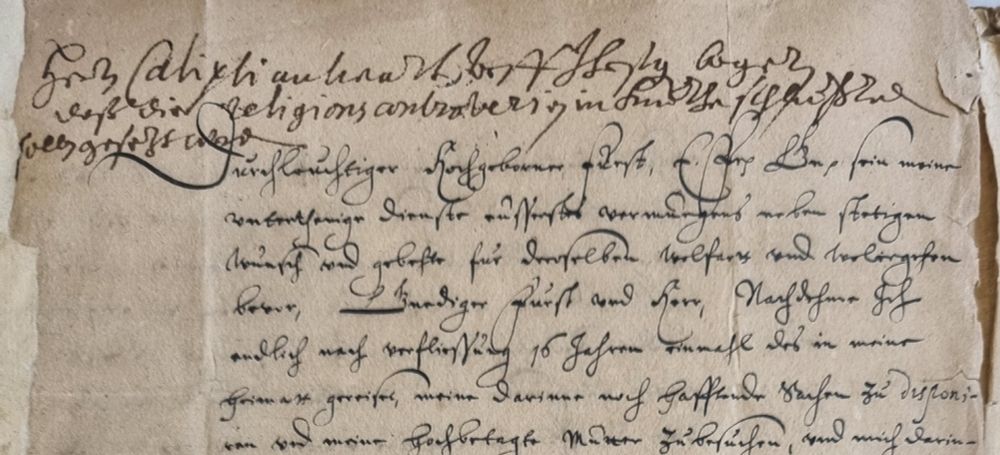 Herr Calixti antwort, 
daß die religions controversien in 
sollen gesetzt werden
Durchleuchtiger Hochgeborner Fürst, E. F. Gn. sein meine
unterthenige dienste eusserstes vermügens neben stetigem
Wunsch und gebette für deroselben Wolfart und wolergehen
bevor, Gnediger Fürst und Herr, Nachdehme Ich
endlich nach verfliessung 16 Jahren einmahl des in meine
heimat gereiset, meine darinne noch hafftende Sachen zu disponi-
ren und meine hochbetagte Mutter zubesuchen, und mich darin-